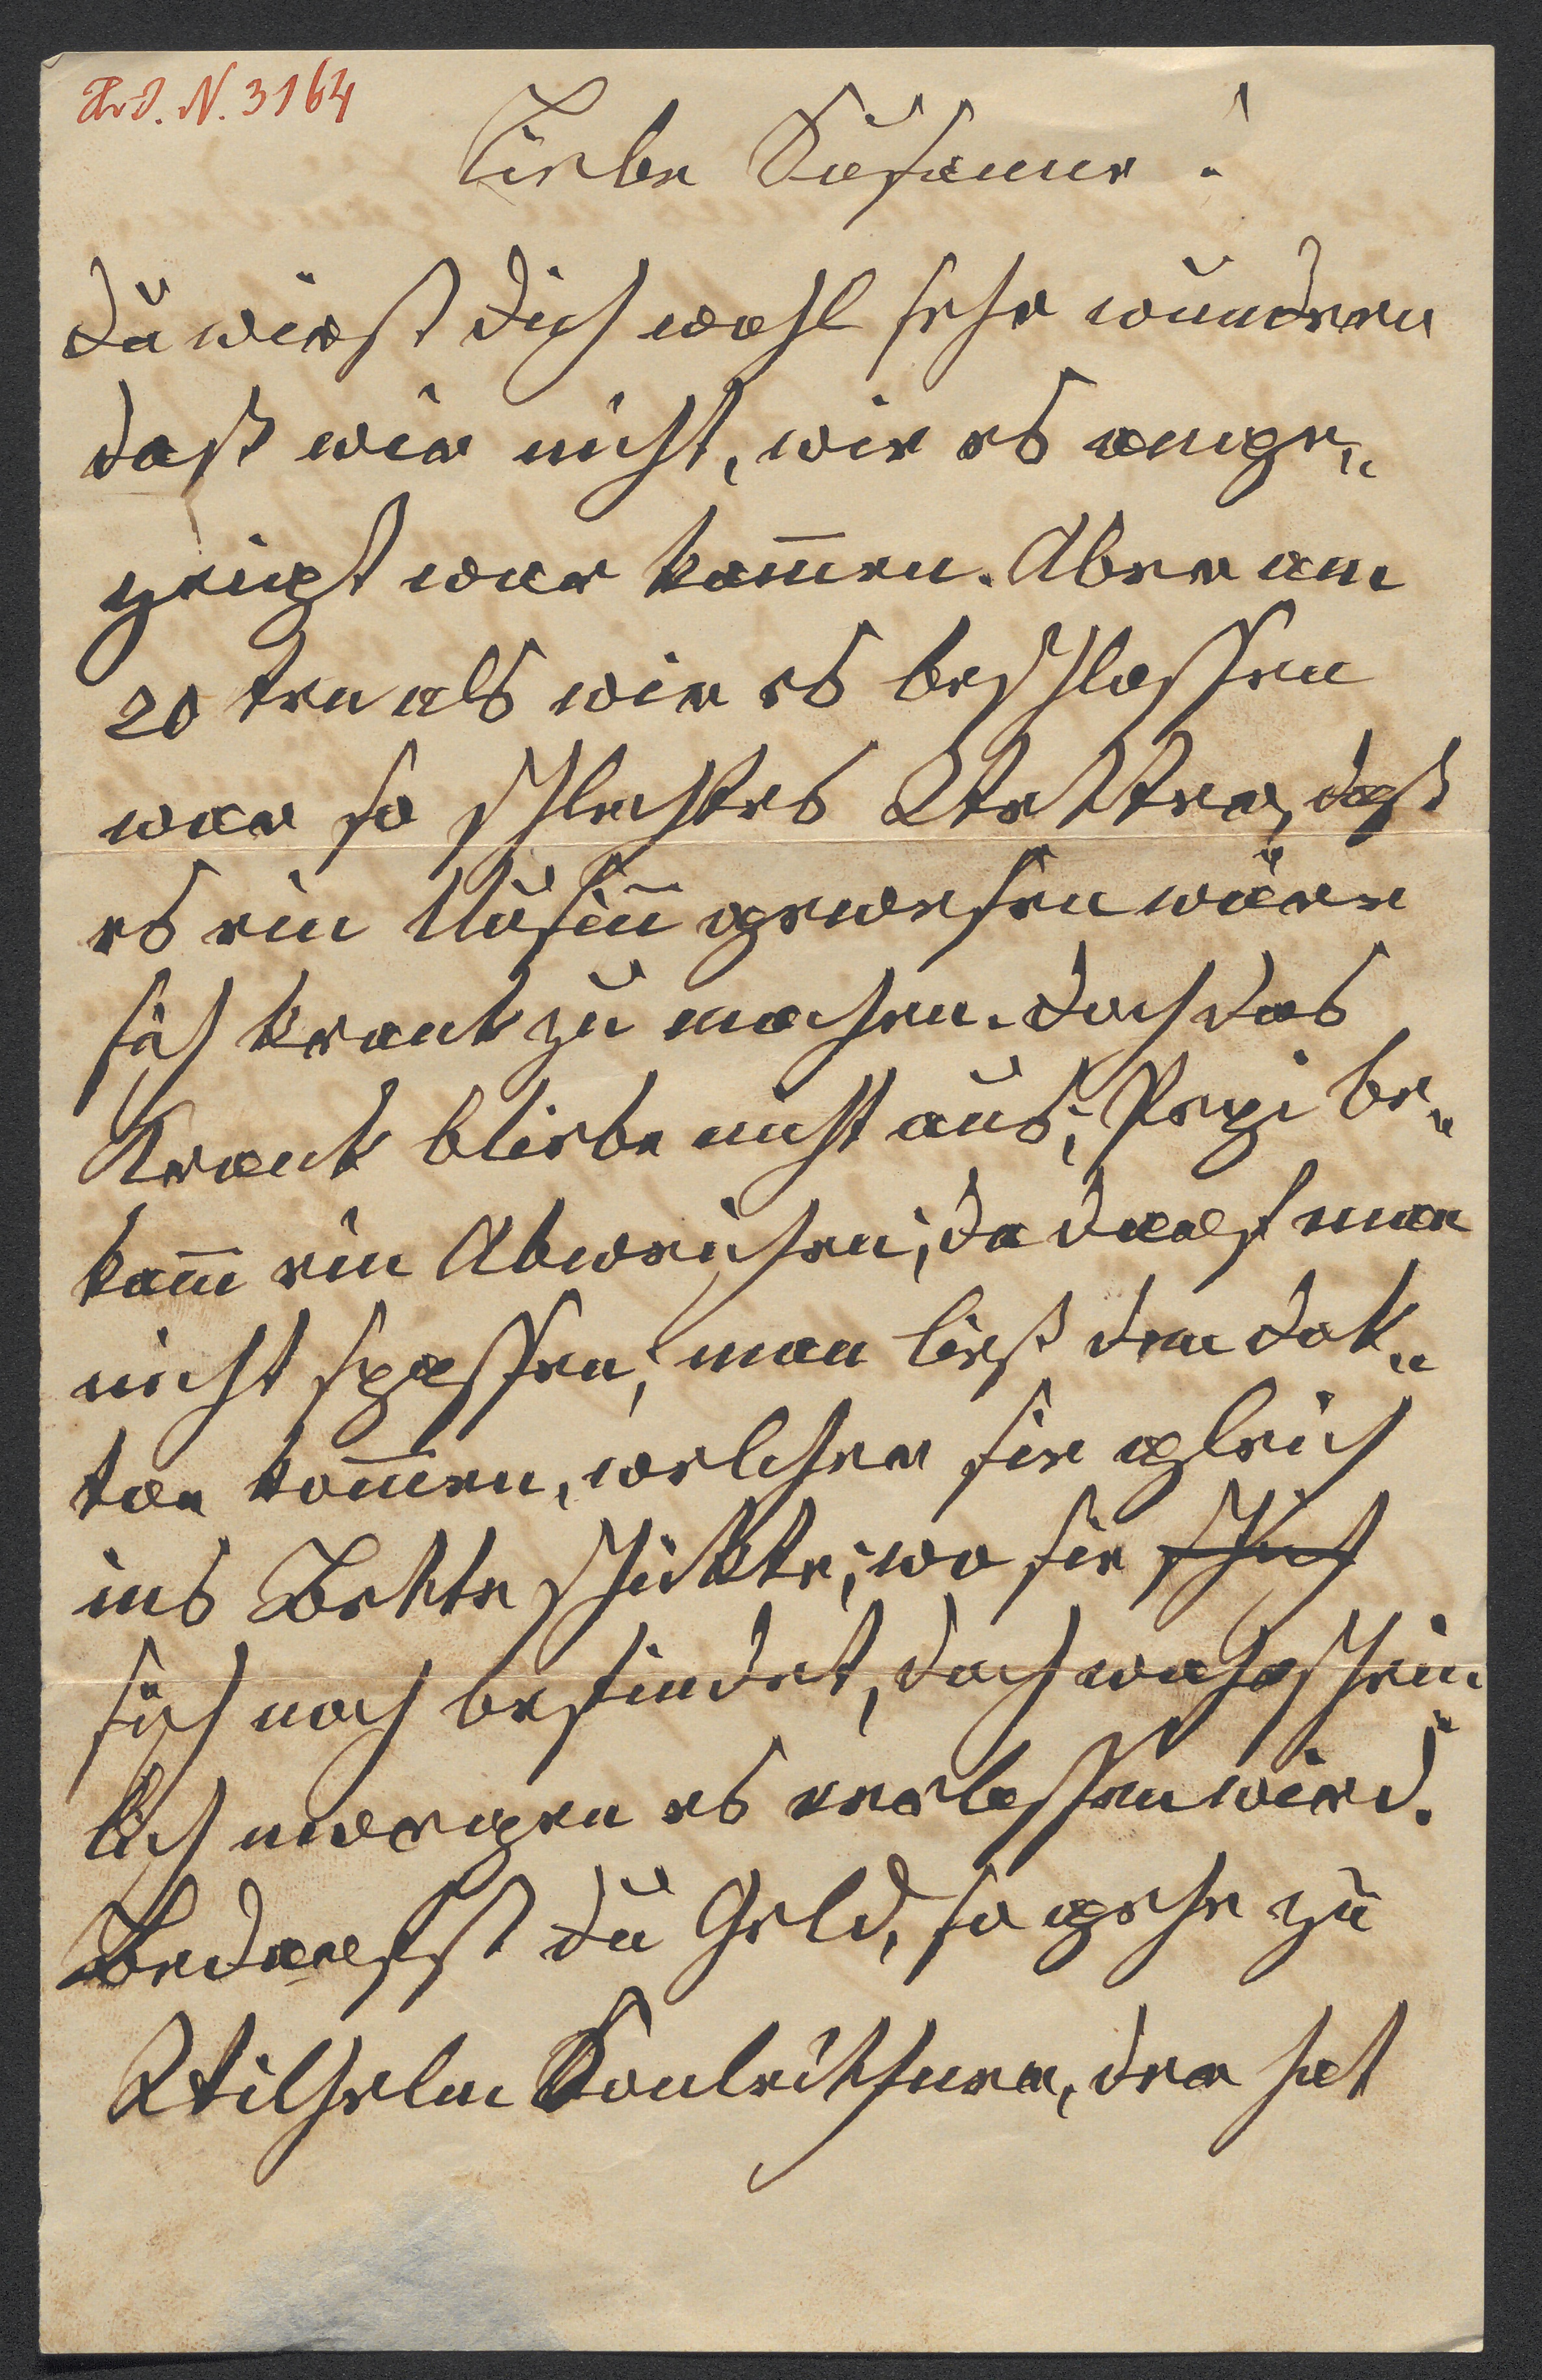 N. 3164
Liebe Susanne!
Du wirst Dich wohl sehr wundern
daß wir nicht, wie es ange„
zeigt war kam̅en. Aber am
20ten als wir es beschlossen
war so schlechtes Wetter, daß
es ein Unsin̅ gewesen wäre
sich krank zu machen. Doch das
Krank bliebe nicht aus; Pepi be„
kam̅ ein Abweichen; da darf man
nicht spassen; man ließ den Dok„
tor kom̅en, welcher sie gleich
ins Bette schickte; wo sie
sich noch befindet, doch wahrschein„
lich morgen es verlassen wird.
Bedarfst Du Geld, so gehe zu
Wilhelm der hat